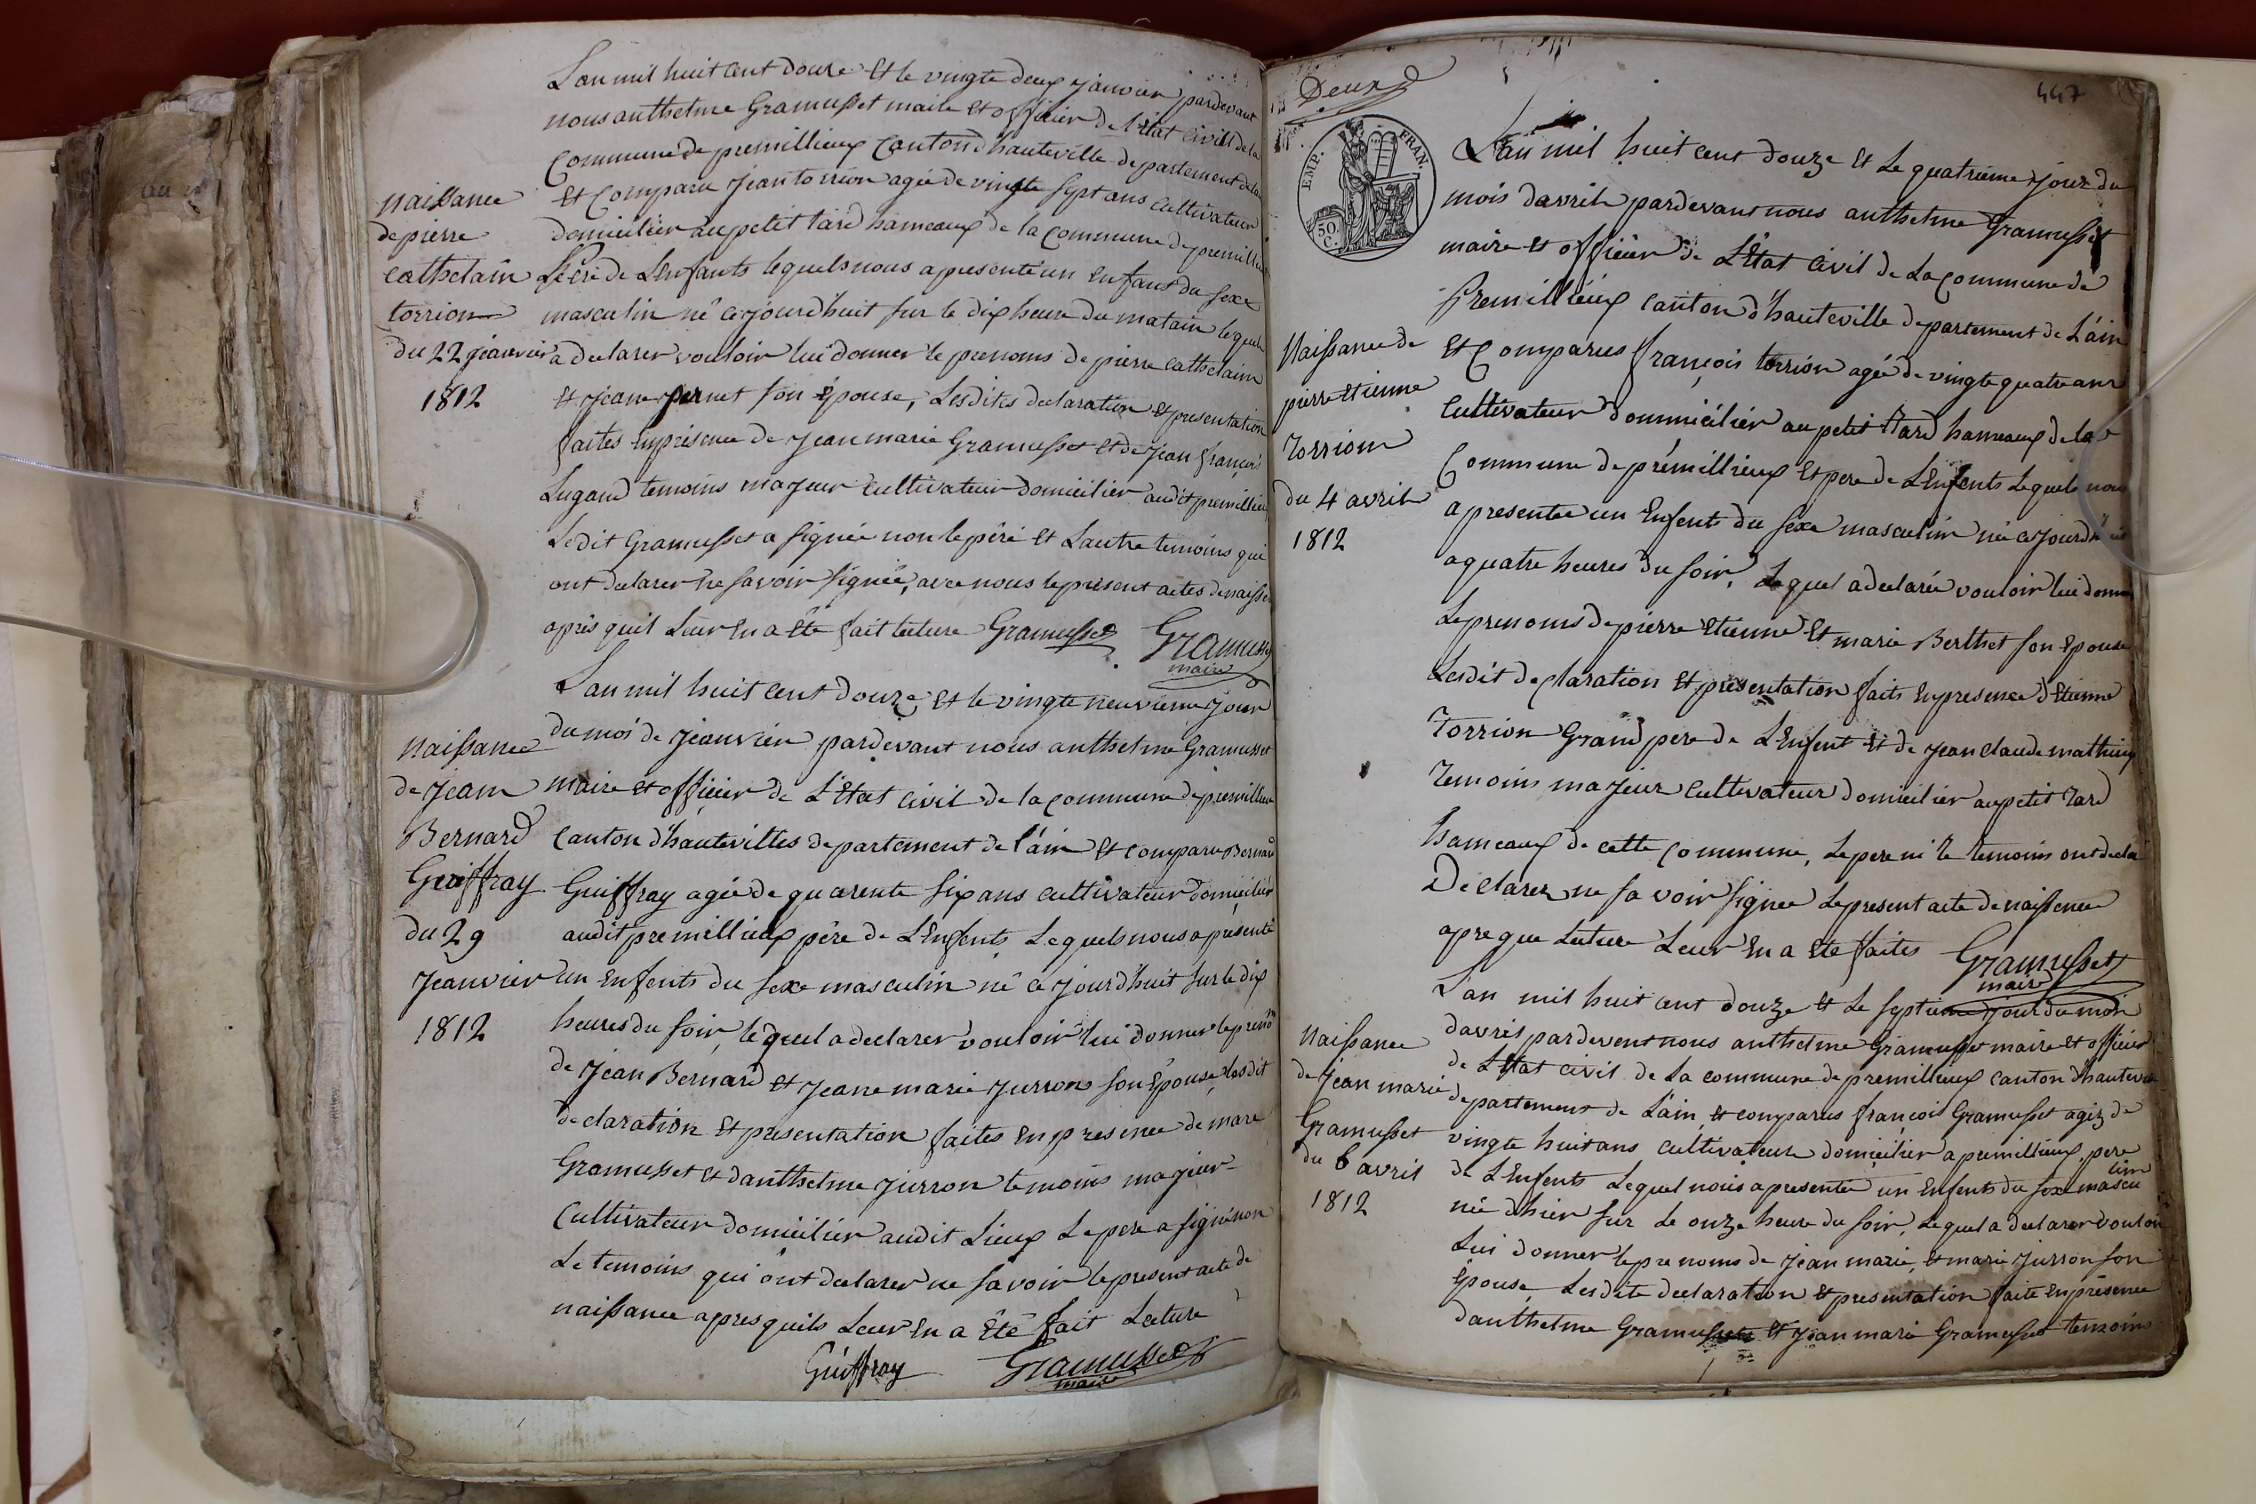 L'an mil huit cent douze et le vingte deux janvier pardevant
nous anthelme Gramusset maire et officier de l'état civil de la
Commune de premillieux Canton d'hauteville departement de l'ain
naissance
et Comparu jean torrion agée de vingte sept ans cultivateur
de pierre
domicilier au petit tard hameaux de la commune de premillieux
cathelain
Père de L'Enfants lequels nous a presenté un Enfans du sexe
torrion
masculin né cejourd'huit sur le dix heure du matain lequel
du 22 jeanvier
a declarer vouloir lui donner le prenoms de pierre cathelaim
1812
et jeane pernet son épouse, Lesdites declaration et presentation
faites En présence de jean marie Gramusset et de jean françois
Lugand temoins majeur cultivateur domicilier audit premillieux
Ledit Gramusset a signée non le pére et L'autre temoins qui
ont declarer ne savoir signée, avec nous le présent actes de naissa
après quil Leur En a été fait lecture Gramusset Gramusset
maire
L'an mil huit cent douze et le vingte neuvieme jour
du mois de jeanvier pardevant nous anthelme Gramusset
naissance
de jean
maire et officier de L'Etat civil de la commune de premillieux
Bernard
Canton d'hautevilles departement de l'ain et comparu Bernard
Guiffray
Guiffray agée de quarente six ans cultivateur domicilier
du 29
audit premillieux père de L'Enfents Lequels nous a présenté
jeanvier
un Enfents du sexe masculin né ce jourd'huit sur le dix
1812
heures du soir, lequel a declarer vouloir lui donner le prenom
de jean Bernard et jeane marie jurron son Epouse, lesdit
declaration et presentation faites en presence de marc
Gramusset et d'anthelme jurron temoins majeur
Cultivateur domicilier audit Lieux Le pere a signé non
Le temoins qui ont declarer ne savoir le present acte de
naissance apres quils Leur En a été fait Lecture
Guiffray Gramusset
maire
Deux
447
EMP. FRAN.
50. C.
L'an mil huit cent douze et le quatrieme jour du
mois d'avril pardevant nous anthelme Gramusset
maire et officier de L'Etat civil de La Commune de
Premillieux canton d'hauteville departement de L'ain
Naissance de
et Comparus françois torrion agé de vingte quatre ans
pierre etienne
Cultivateur dommicilier au petit Tard hameaux de la
Torrion
Commune de prémillieux Et pere de L'Enfents Lequels nous
du 4 avril
a presentee un Enfents du sexe masculin né cejourd'huit
1812
a quatre heures du soir, Lequel a declarée vouloir lui donner
Le prenoms de pierre etienne Et marie Berthet son epouse
Lesdit declaration Et présentation faits En presence d'Etienne
Torrion Grand pere de L'Enfent et de jean claude mathieux
Temoins majeur cultivateur domicilier au petit Tard
hameaux de cette commune, Le pere ni le temoins ont decla
Declarer ne savoir signee Le present acte de naissence
apre que Lecture Leur En a Eté faites Gramusset
maire
L'an mil huit cent douze et Le septieme jour du mois
d'avril pardevent nous anthelme Gramusset maire et officier
Naissance
de L'Etat civil de La commune de premillieux canton d'hautevi
de jean marie
departement de L'ain et comparus françois Gramusset agez de
Gramusset
vingte huit ans cultivateur domicilier a premillieux, pere
du 6 avril
de L'Enfents Lequel nous a presentée un Enfents du sexe mascu
lin
1812
né d'hier sur Le onze heure du soir, Lequel a declarer vouloir
Lui donner le prenoms de jean marie, et marie jurron son
Epouse, Lesdite declaration et presentation faite En présence
d'anthelme Gramusset et jean marie Gramusset temoins